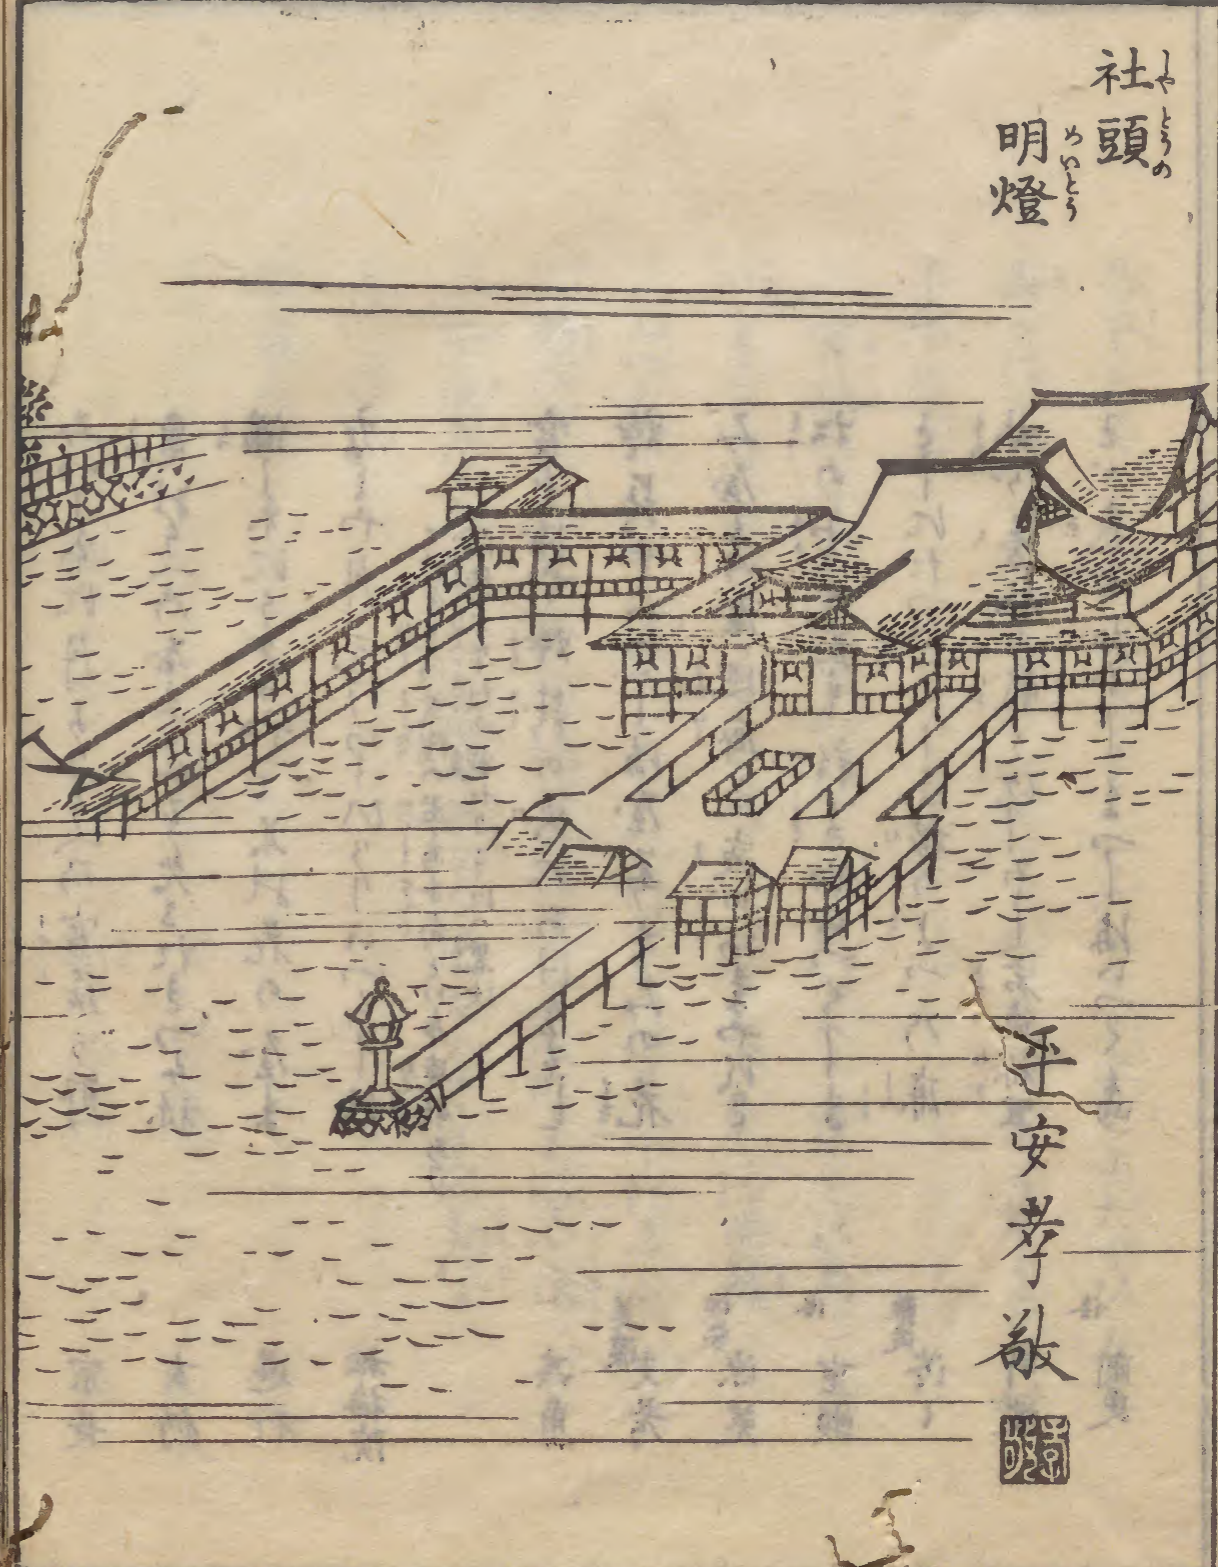 社頭
しやとうの
明燈
めいとう
平安孝敬
孝敬